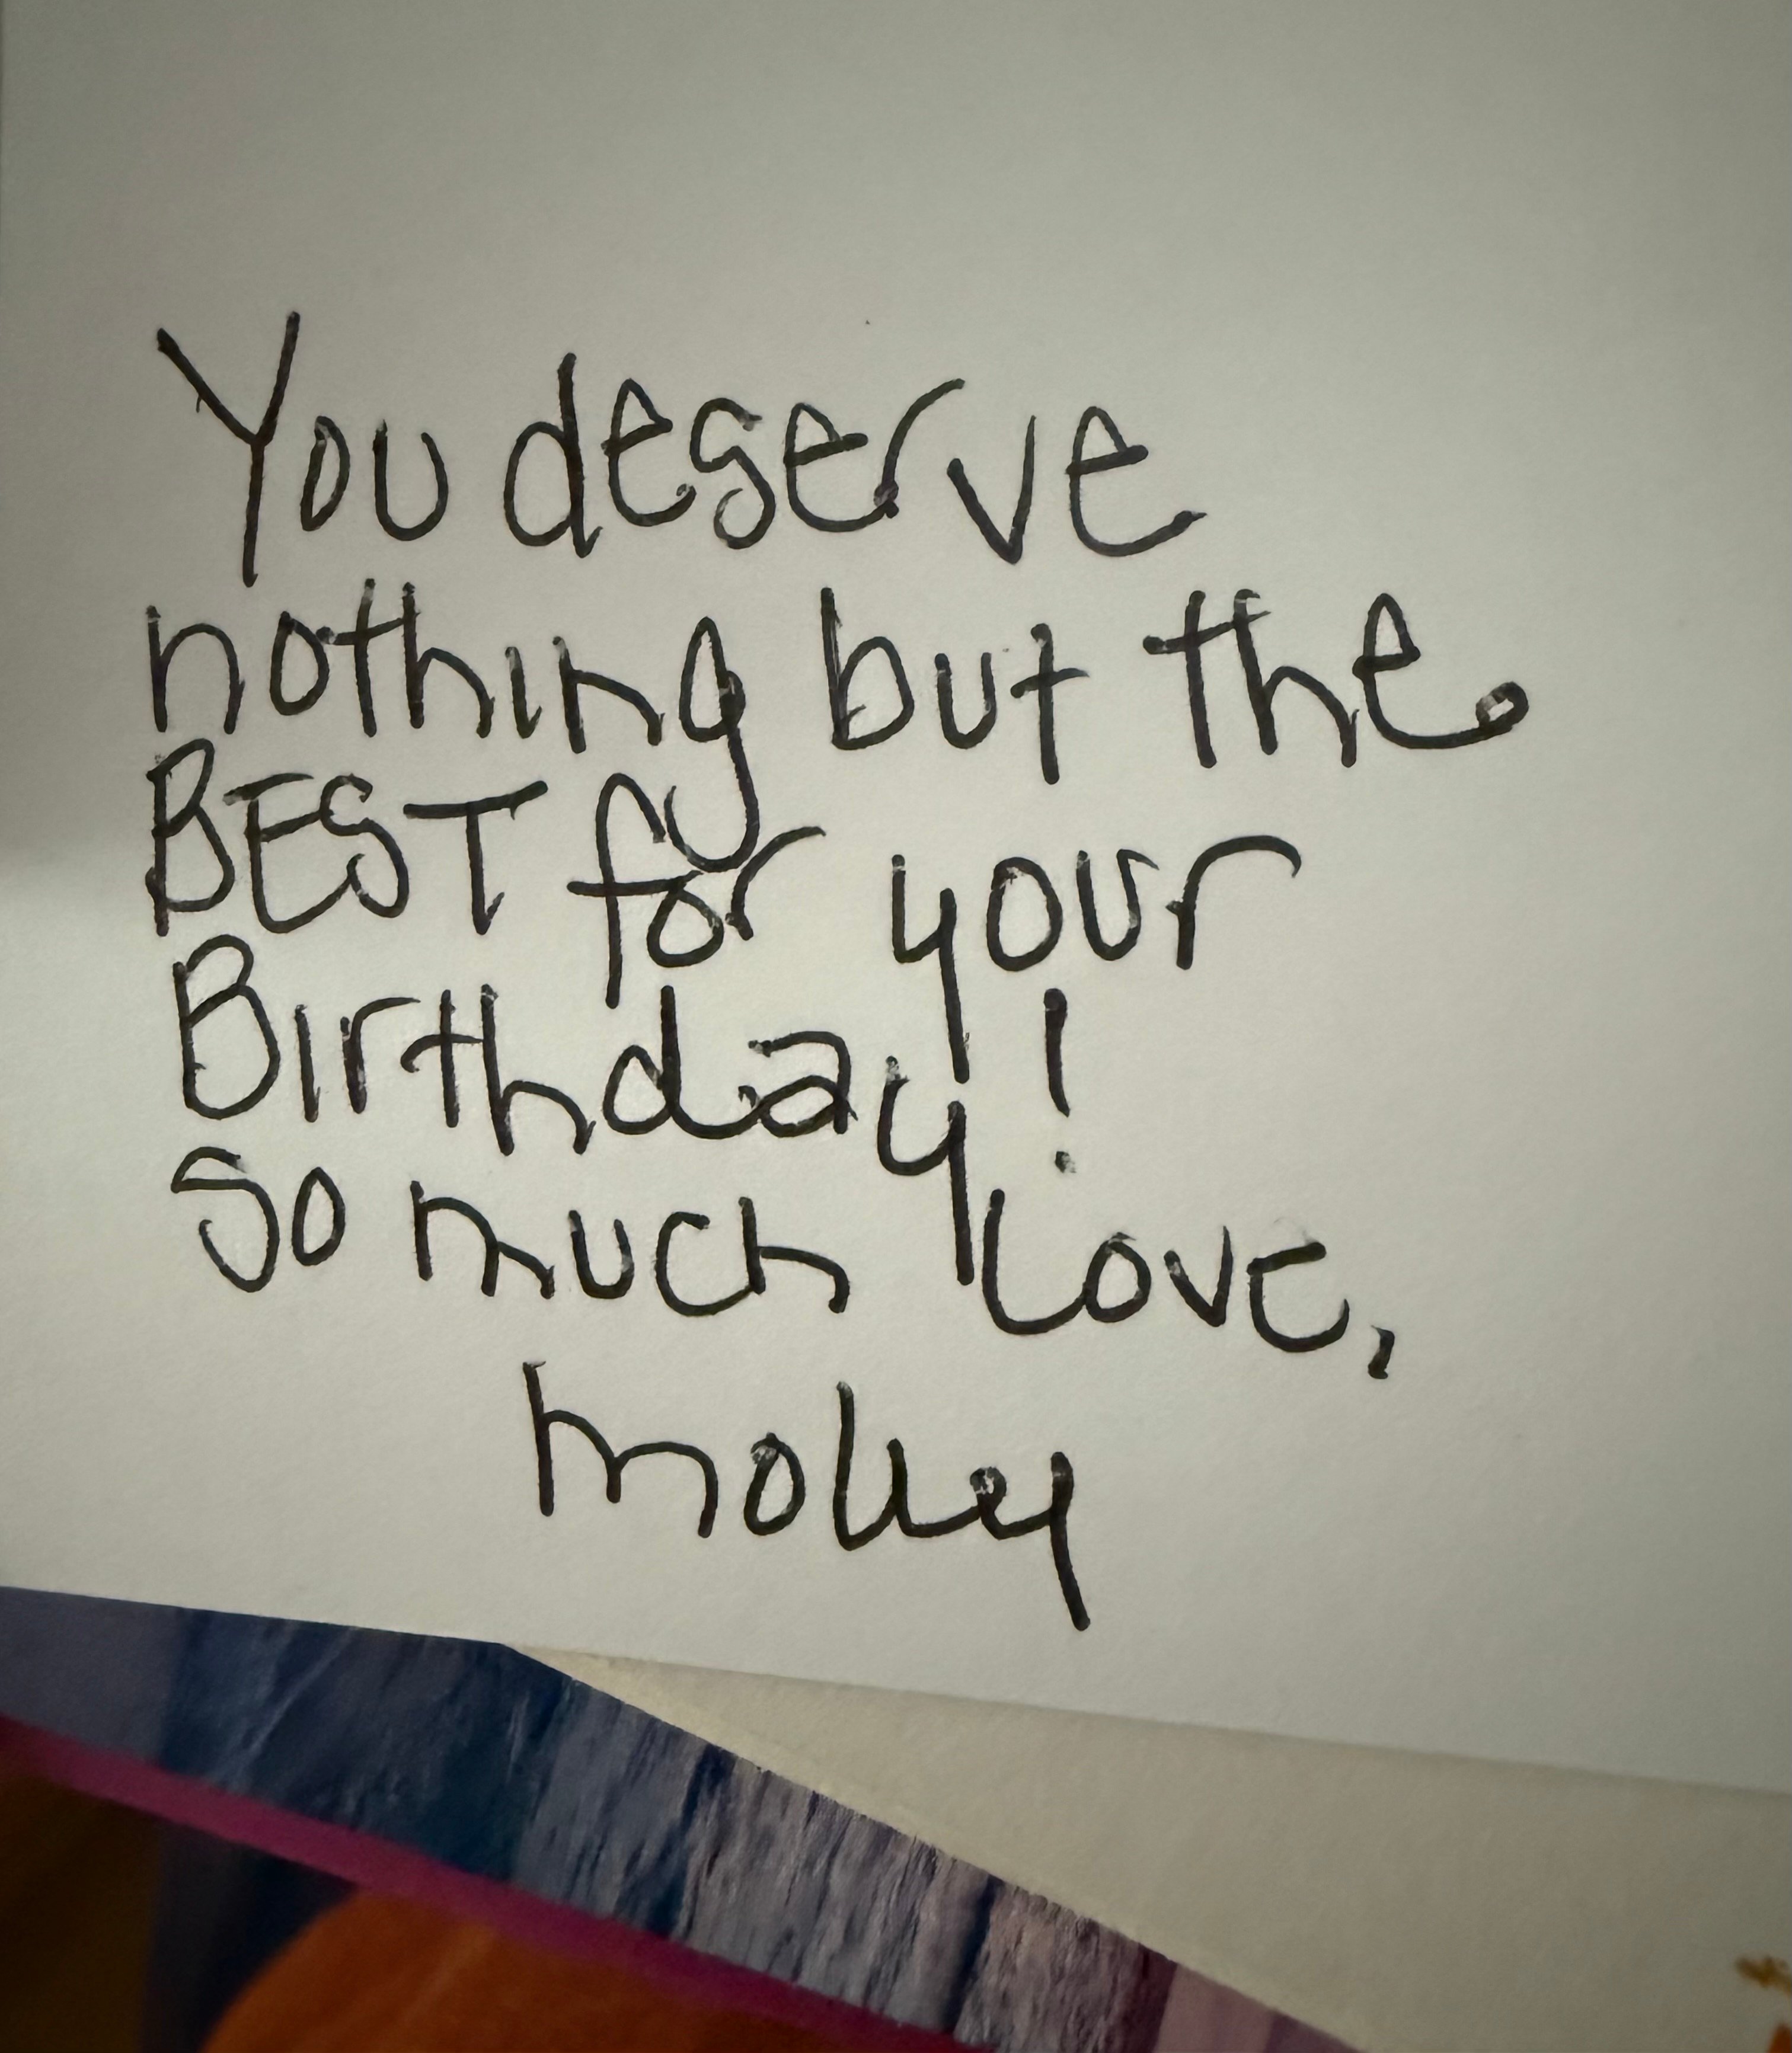 You deserve
nothing but the
BEST for your
Birthday!
So much Love,
Molly